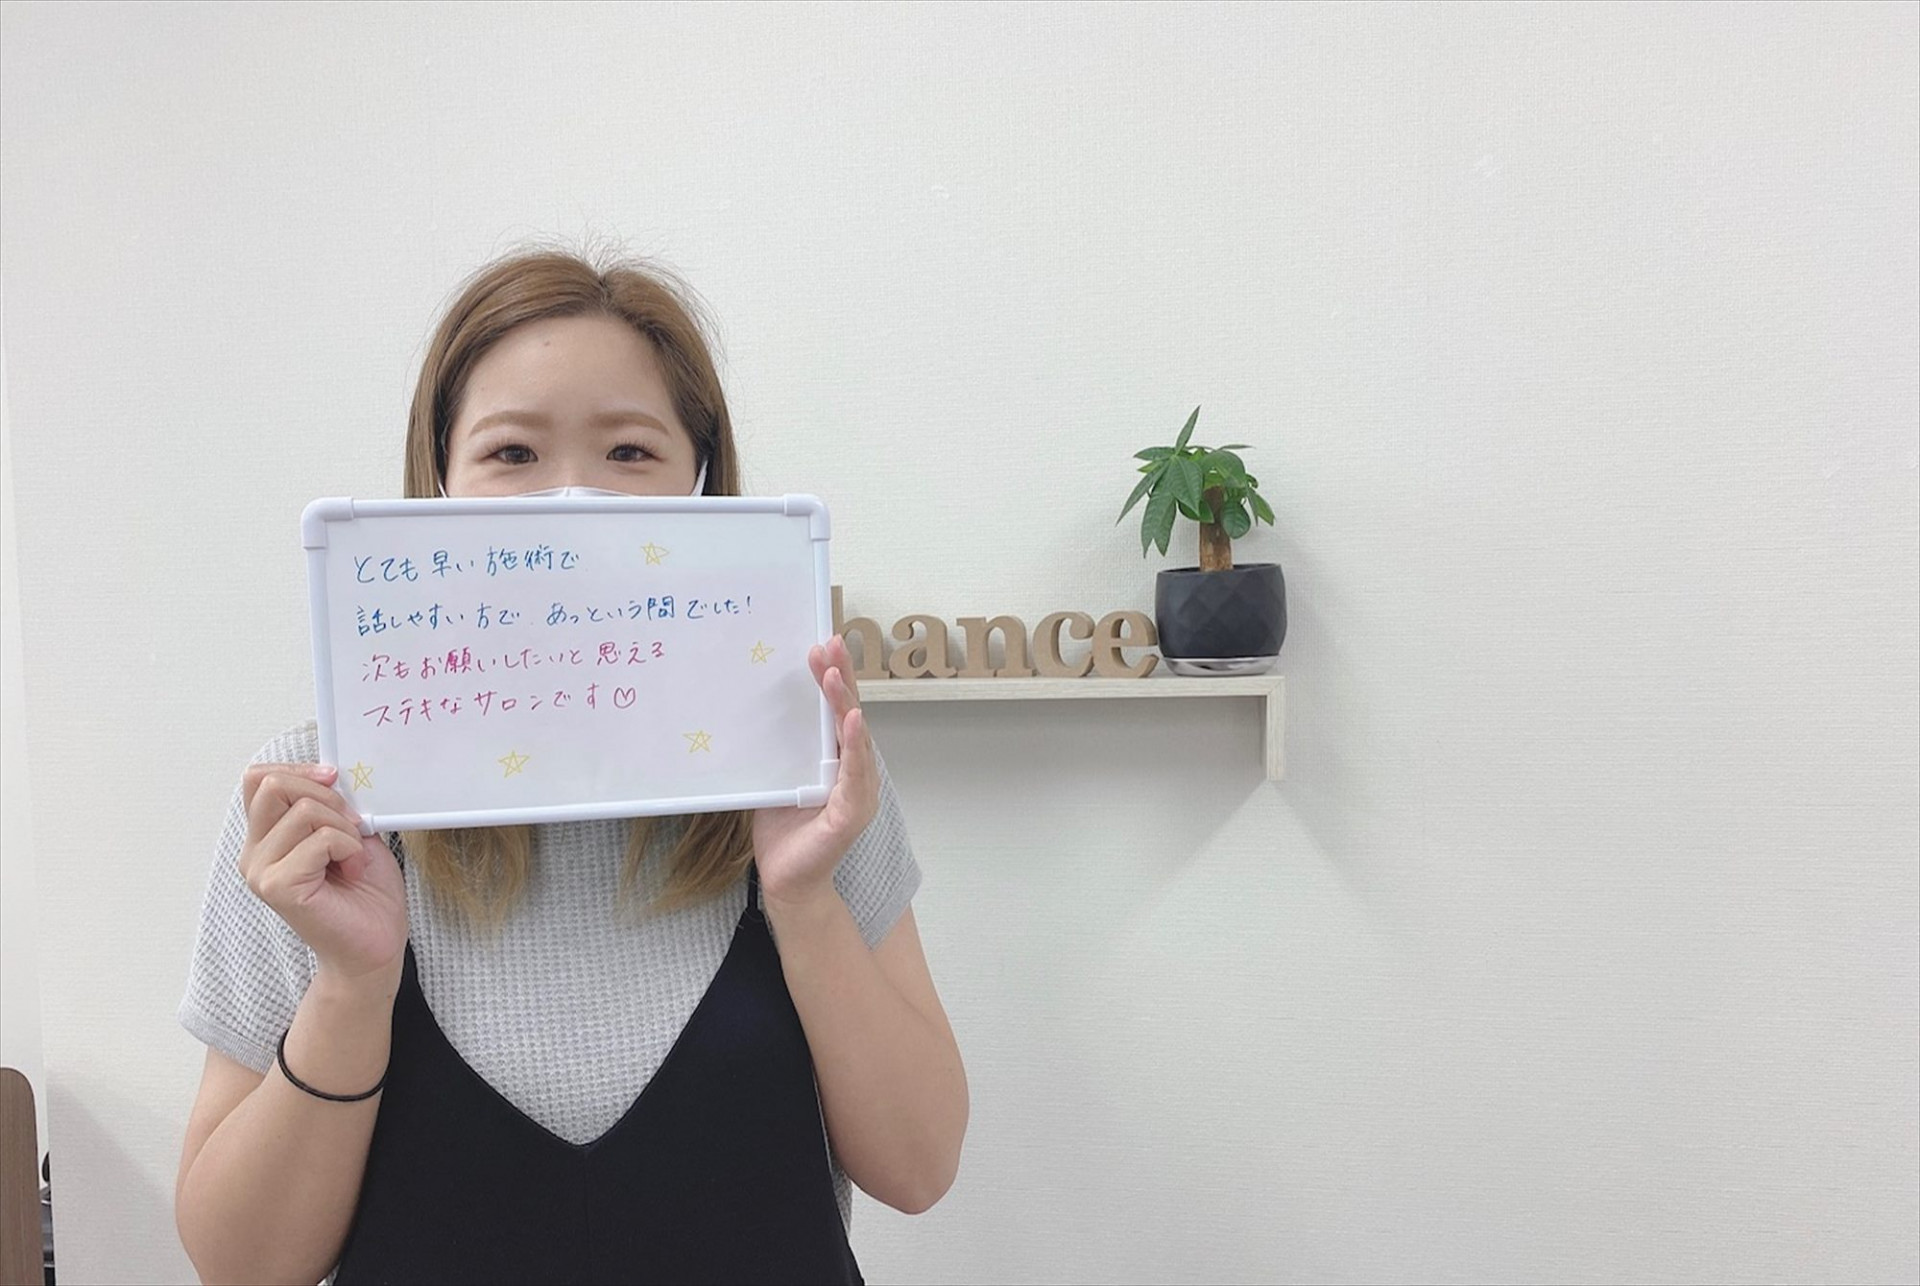 とても早い施術で
話しやすい方で、あっという間でした!
次もお願いしたいと思える
ステキなサロンです♡
hance